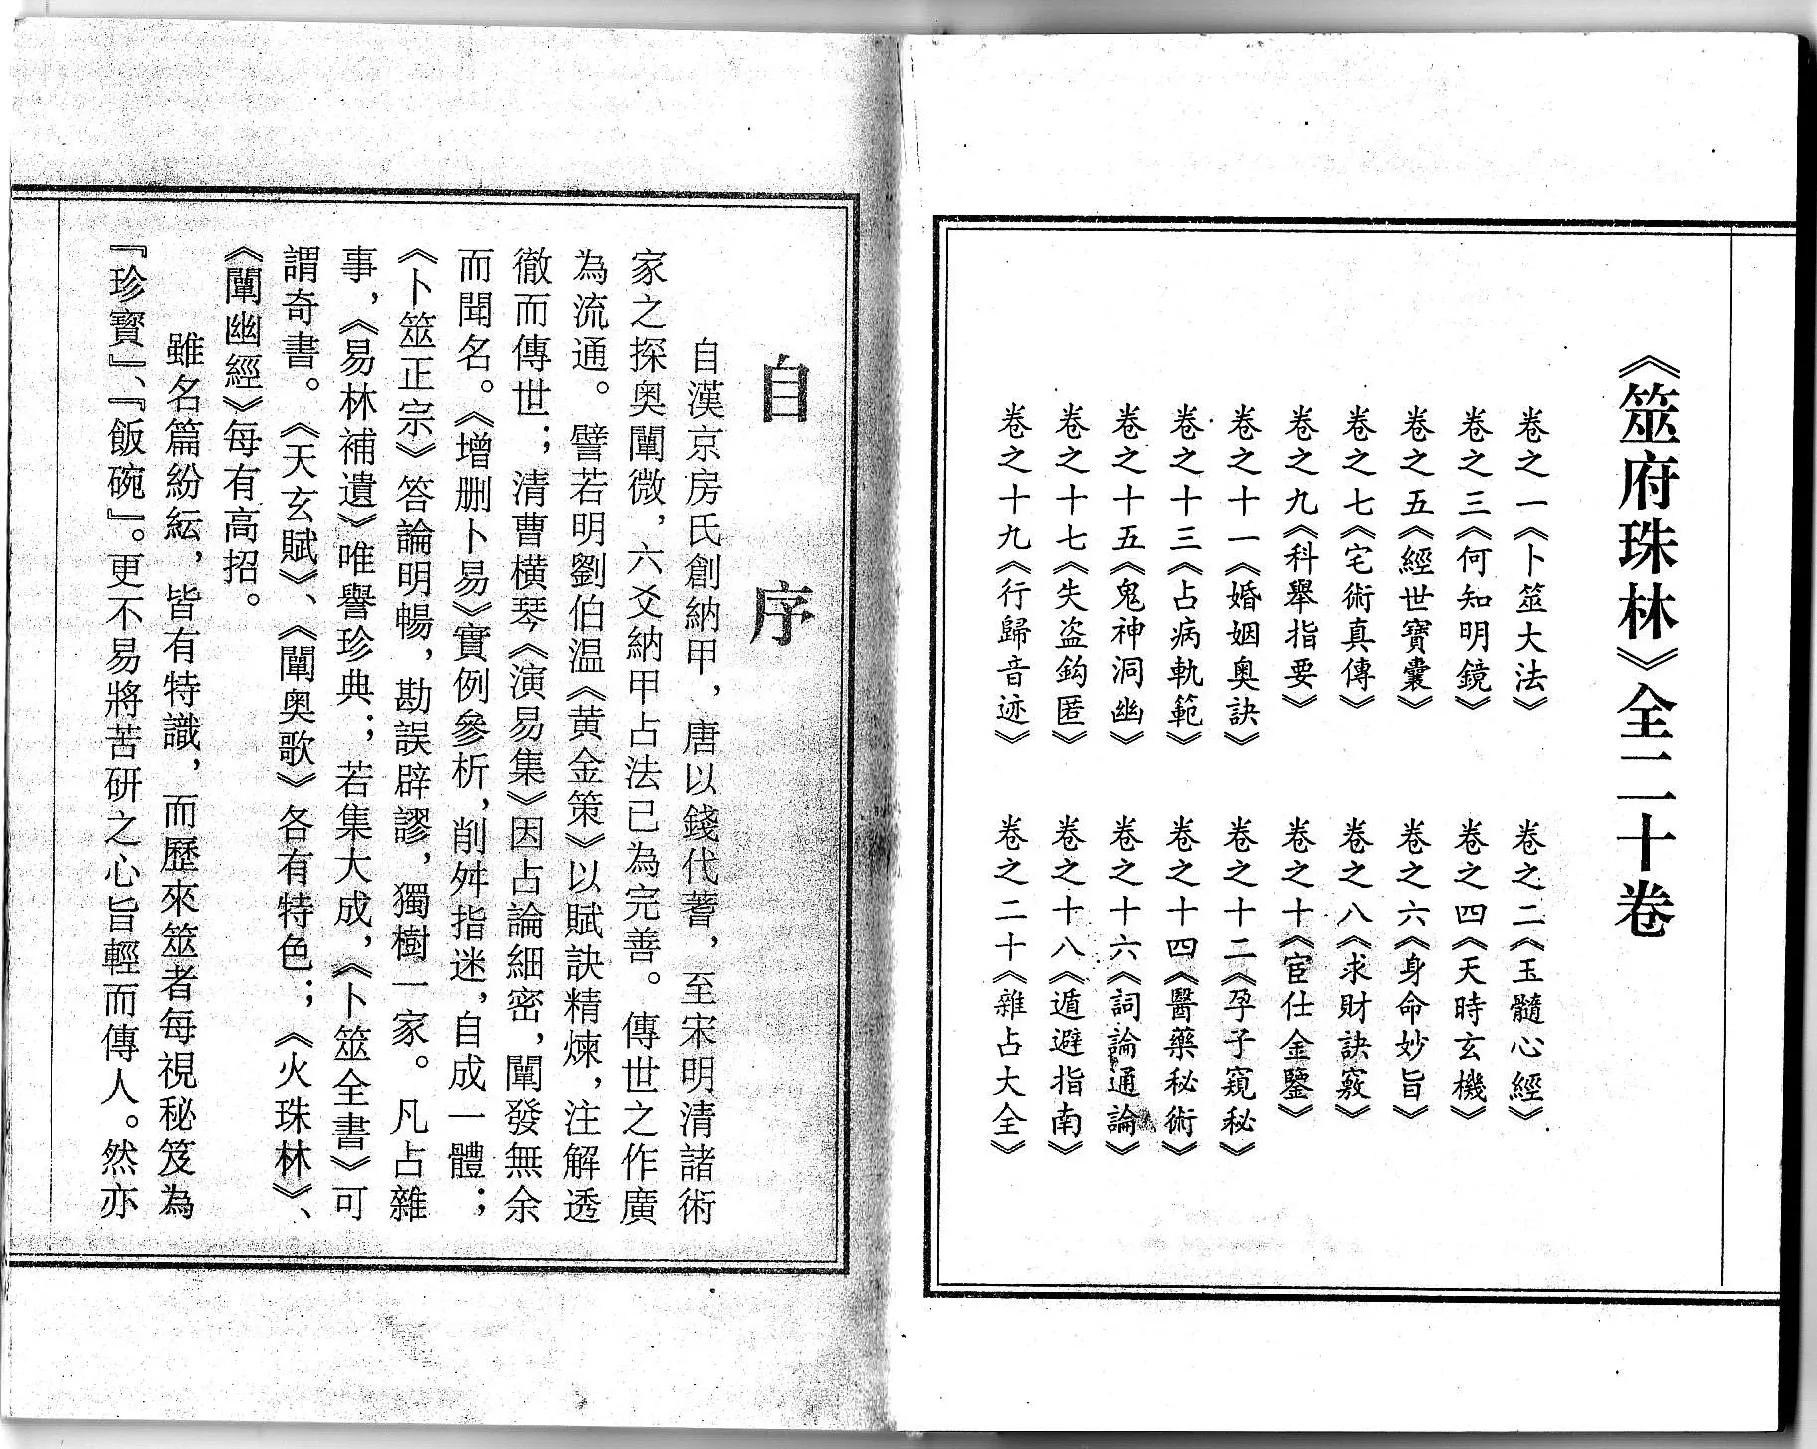 《筮府珠林》全二十卷
卷之一《卜筮大法》 卷之二《玉髓心經》
卷之三《何知明鏡》 卷之四《天時玄機》
卷之五《經世寶囊》 卷之六《身命妙旨》
卷之七《宅術真傳》 卷之八《求財訣竅》
卷之九《科舉指要》 卷之十《宦仕金鑒》
卷之十一《婚姻奧訣》 卷之十二《孕子窺秘》
卷之十三《占病軌範》 卷之十四《醫藥秘術》
卷之十五《鬼神洞幽》 卷之十六《詞論通論》
卷之十七《失盗鈎匿》 卷之十八《遁避指南》
卷之十九《行歸音迹》 卷之二十《雜占大全》
自序
自漢京房氏創納甲，唐以錢代蓍，至宋明清諸術
家之探奥闡微，六爻納甲占法已為完善。傳世之作廣
為流通。譬若明劉伯温《黄金策》以賦訣精煉，注解透
徹而傳世；清曹横琴《演易集》因占論細密，闡發無余
而聞名。《增删卜易》實例參析，削舛指迷，自成一體；
《卜筮正宗》答論明暢，勘誤辟謬，獨樹一家。凡占雜
事，《易林補遺》唯譽珍典；若集大成，《卜筮全書》可
謂奇書。《天玄賦》、《闡奥歌》各有特色；《火珠林》、
《闡幽經》每有高招。
雖名篇紛紜，皆有特識，而歷來筮者每視秘笈為
『珍寶』、『飯碗』。更不易將苦研之心旨輕而傳人。然亦